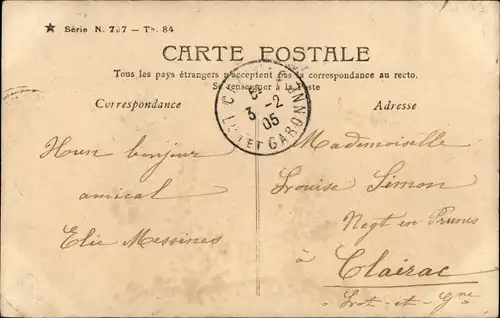 ★ Série N. 787 — Th. 84
CARTE POSTALE
Tous les pays étrangers n'acceptent pas la correspondance au recto.
Se renseigner à la Poste
Correspondance
Adresse
3 -2
05
LOT ET GARONNE
bonjour
amical
Elie Messines
Mademoiselle
Louise Simon
Negt en Prunes
à
Clairac
Lot-et-Gne